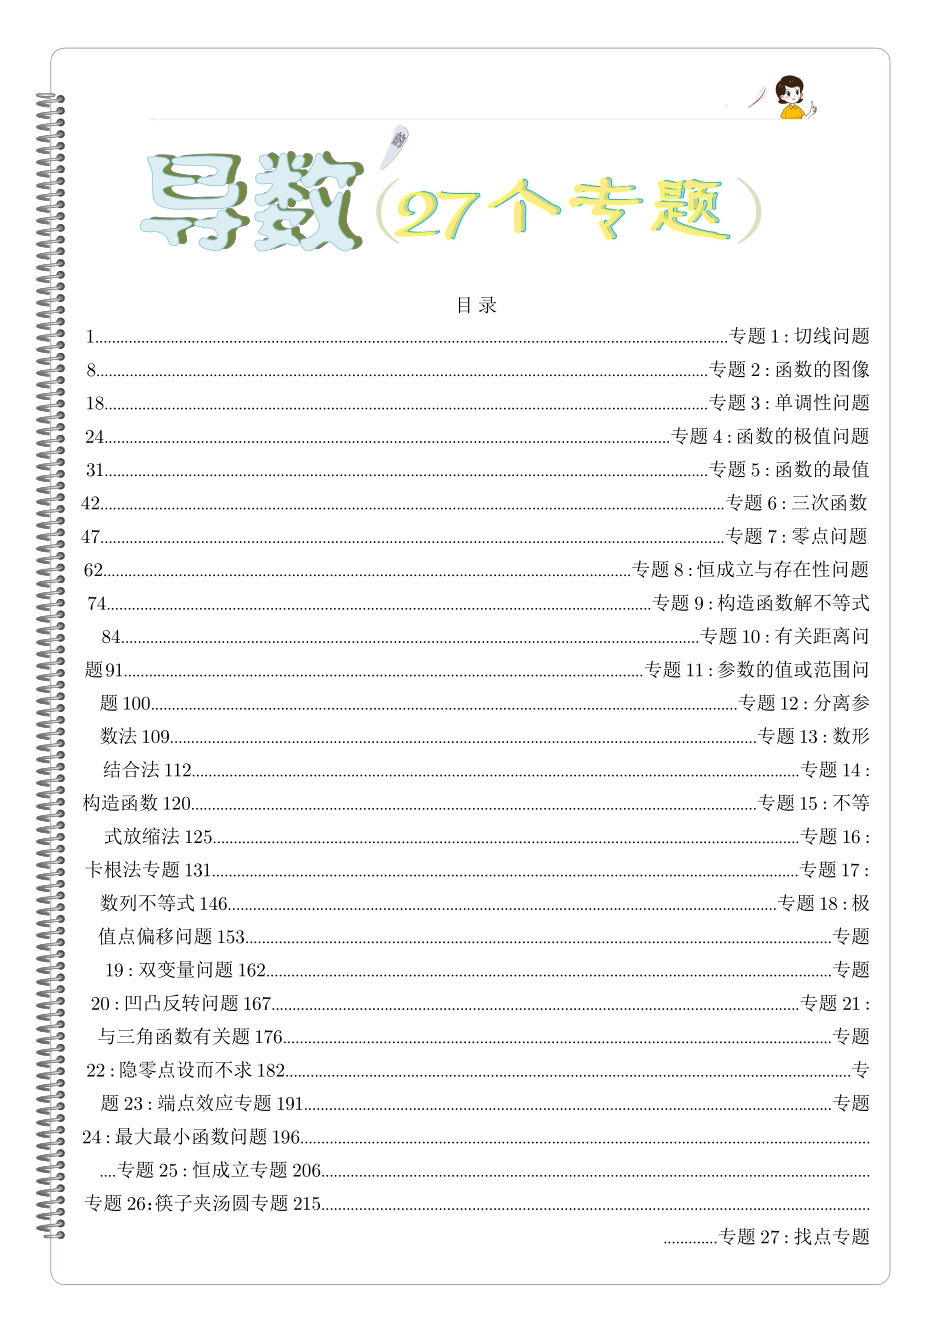 的
导数（27个专题）
目录
1......专题 1：切线问题
8......专题 2：函数的图像
18......专题 3：单调性问题
24......专题 4：函数的极值问题
31......专题 5：函数的最值
42......专题 6：三次函数
47......专题 7：零点问题
62......专题 8：恒成立与存在性问题
74......专题 9：构造函数解不等式
84......专题 10：有关距离问
题91......专题 11：参数的值或范围问
题 100......专题 12：分离参
数法 109......专题 13：数形
结合法 112......专题 14：
构造函数 120......专题 15：不等
式放缩法 125......专题 16：
卡根法专题 131......专题 17：
数列不等式 146......专题 18：极
值点偏移问题 153......专题
19：双变量问题 162......专题
20：凹凸反转问题 167......专题 21：
与三角函数有关题 176......专题
22：隐零点设而不求 182......专
题 23：端点效应专题 191......专题
24：最大最小函数问题 196......
....专题 25：恒成立专题 206......
专题 26：筷子夹汤圆专题 215......
.............专题 27：找点专题